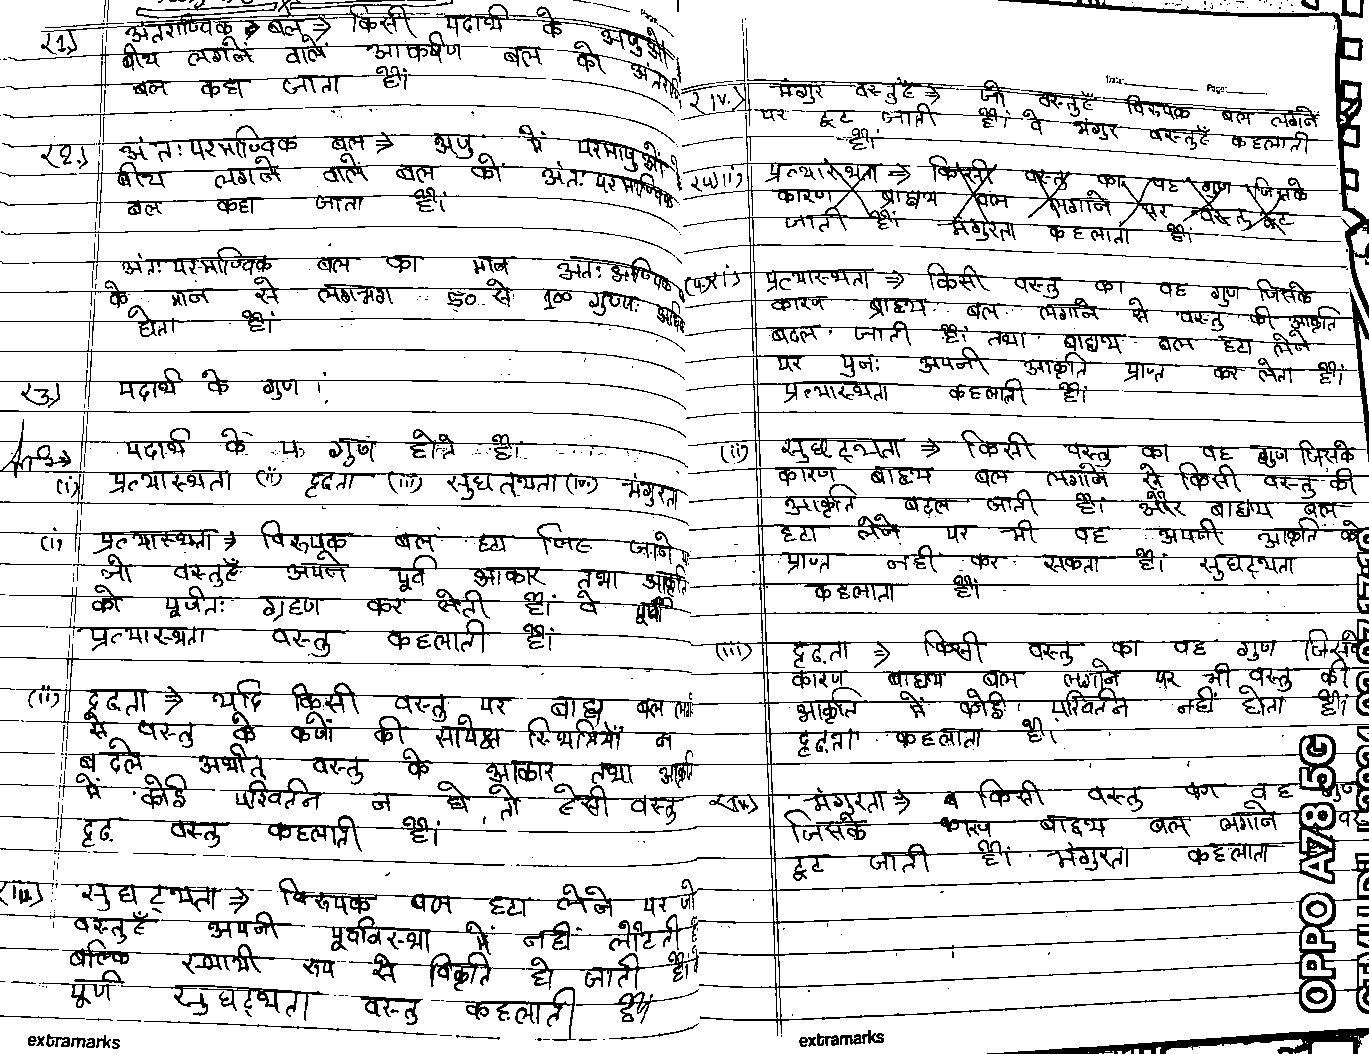 (1) अंतराण्विक बल ⇒ किसी पदार्थ के अणुओं
बीच लगने वाले आकर्षण बल को
बल कहा जाता है।
(2) अंतःपरमाण्विक बल ⇒ अणु में परमाणुओं
बीच लगने वाले बल को अंतःपरमाण्विक
बल कहा जाता है।
अंतःपरमाण्विक बल का मान अंतःआण्विक
के मान से लगभग 50 से 100 गुणा
होता है।
(3) पदार्थ के गुण।
Ans ⇒ पदार्थ के 4 गुण होते हैं।
(i) प्रत्यास्थता (ii) दृढता (iii) सुघटयता (iv) भंगुरता
(i) प्रत्यास्थता ⇒ विरूपक बल हटा लिए जाने
जो वस्तुएँ अपने पूर्व आकार तथा आकृति
को पूर्णतः ग्रहण कर लेती है। वे पूर्ण
प्रत्यास्थता वस्तु कहलाती है।
(ii) दृढता ⇒ यदि किसी वस्तु पर बाह्य बल
से वस्तु के कणों की सापेक्ष स्थितियाँ न
बदले अर्थात् वस्तु के आकार तथा
में कोई परिवर्तन न हो, तो ऐसी वस्तु
दृढ वस्तु कहलाती है।
(iii) सुघट्यता ⇒ विरूपक बल हटा लेने पर जो
वस्तुएँ अपनी पूर्वावस्था में नहीं लौटती
बल्कि स्थायी रूप से विकृति हो जाती है।
पूर्ण सुघट्यता वस्तु कहलाती है।
extramarks
(iv) भंगुर वस्तुएँ ⇒ जो वस्तुएँ विरूपक बल लगाने
पर टूट जाती है। वे भंगुर वस्तुएँ कहलाती
है।
प्रत्यास्थता ⇒ किसी वस्तु का वह गुण जिसके
कारण बाह्य बल लगाने पर वस्तु टूट
जाती है। भंगुरता कहलाता है।
(i) प्रत्यास्थता ⇒ किसी वस्तु का वह गुण जिसके
कारण बाह्य बल लगाने से वस्तु की आकृति
बदल जाती है। तथा बाह्य बल हटा लेने
पर पुनः अपनी आकृति प्राप्त कर लेता है।
प्रत्यास्थता कहलाती है।
(ii) सुघट्यता ⇒ किसी वस्तु का वह गुण जिसके
कारण बाह्य बल लगाने से किसी वस्तु की
आकृति बदल जाती है। और बाह्य बल
हटा लेने पर भी वह अपनी आकृति को
प्राप्त नहीं कर सकता है। सुघट्यता
कहलाता है।
(iii) दृढता ⇒ किसी वस्तु का वह गुण जिसके
कारण बाह्य बल लगाने पर भी वस्तु की
आकृति में कोई परिवर्तन नहीं होता है।
दृढता कहलाता है।
(iv) भंगुरता ⇒ किसी वस्तु का वह गुण
जिसके कारण बाह्य बल लगाने पर
टूट जाती है। भंगुरता कहलाता
extramarks
OPPO A78 5G